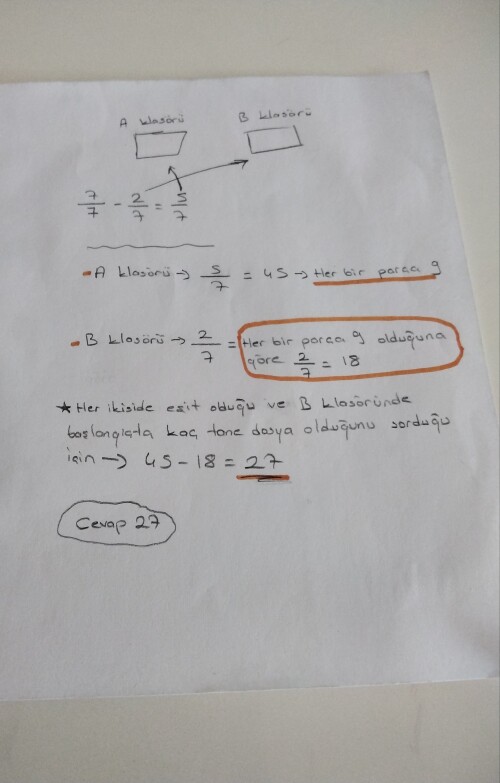 A klasörü B klasörü
7/7 - 2/7 = 5/7
- A klasörü → 5/7 = 45 → Her bir parça 9
- B klasörü → 2/7 = Her bir parça 9 olduğuna
göre 2/7 = 18
★ Her ikiside eşit olduğu ve B klasöründe
başlangıçta kaç tane dosya olduğunu sorduğu
için → 45 - 18 = 27
Cevap 27